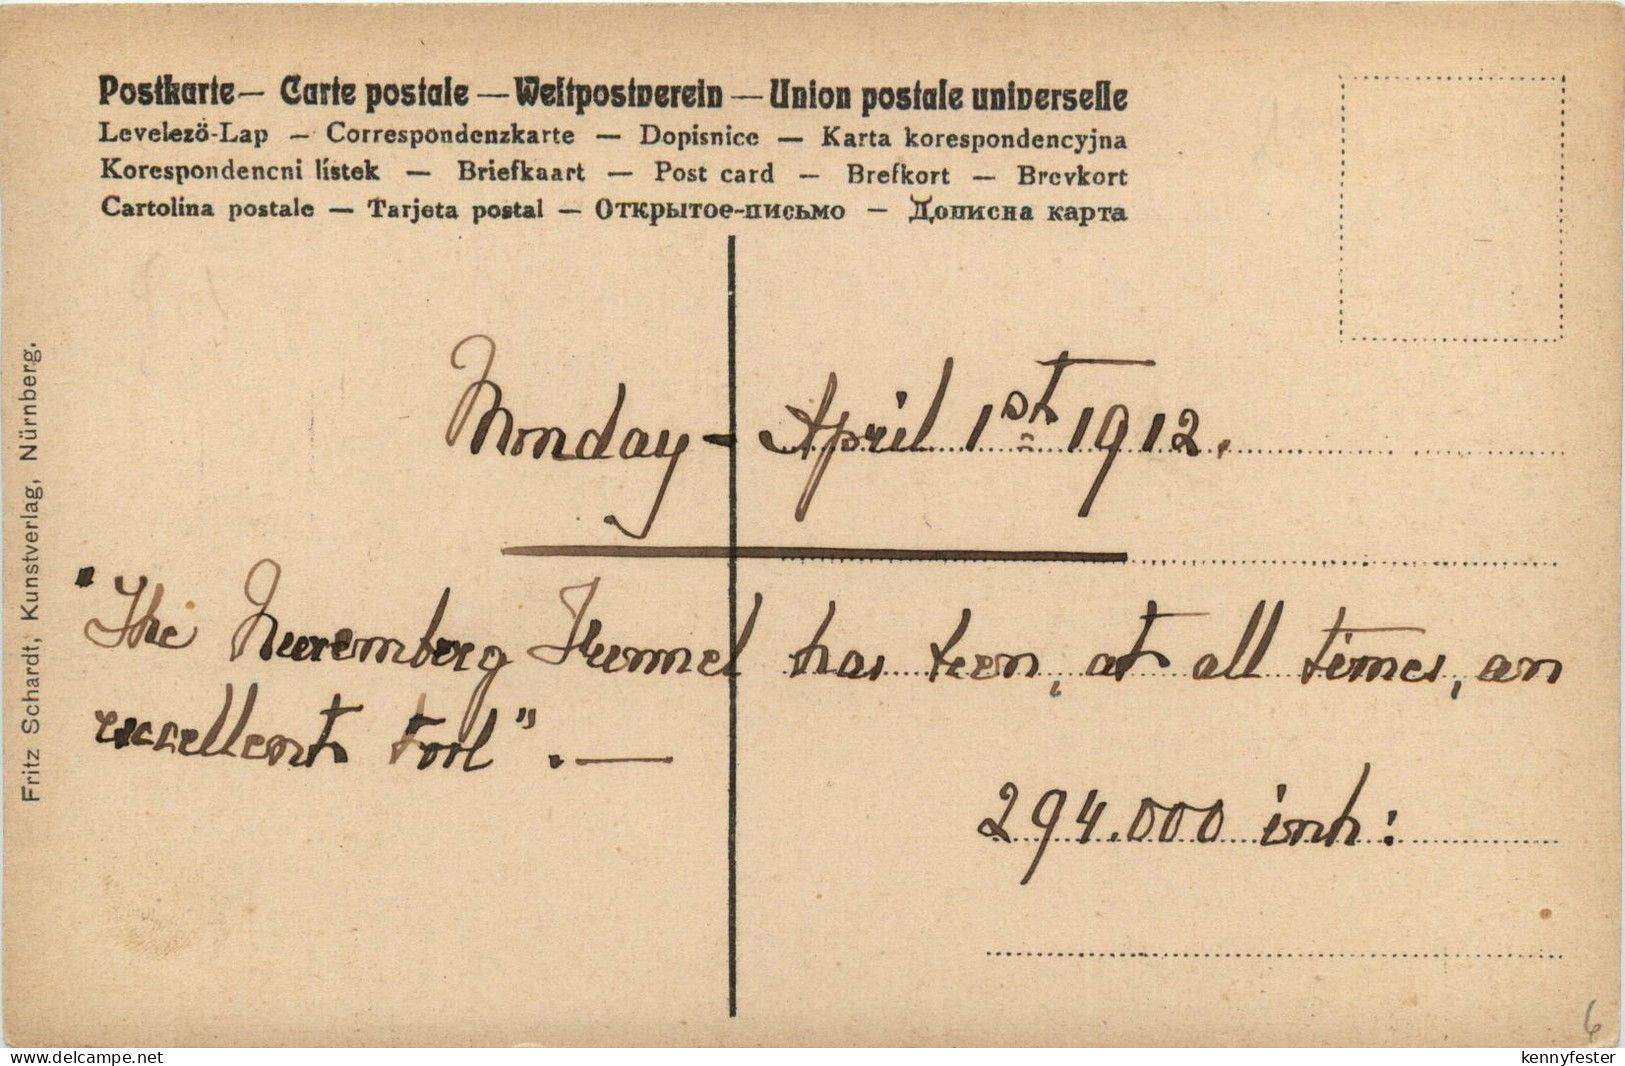 Postkarte — Carte postale — Weltpostverein — Union postale universelle
Levelezö-Lap — Correspondenzkarte — Dopisnice — Karta korespondencyjna
Korespondencni lístek — Briefkaart — Post card — Brefkort — Brevkort
Cartolina postale — Tarjeta postal — Открытое-письмо — Дописна карта
Monday - April 1st 1912.
"The Nuremberg Funnel has been, at all times, an
excellent tool". —
294.000 inh:
Fritz Schardt, Kunstverlag, Nürnberg.
6
www.delcampe.net
kennyfester